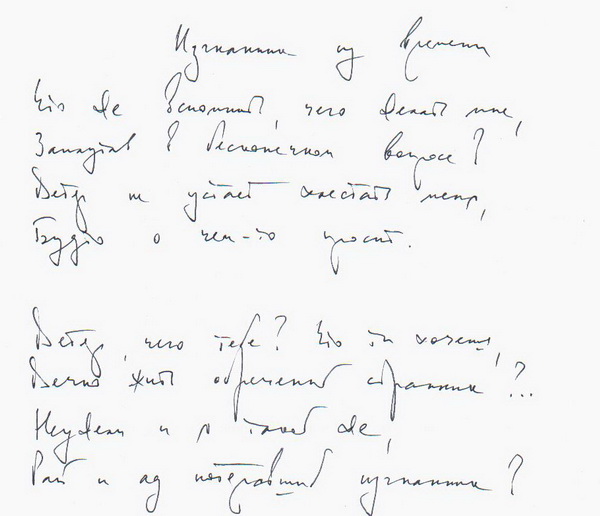 Изгнанник из времени
Кто же вспомнит, чего желать мне,
Запутав в бесконечном вопросе?
Ветер не устаёт хлестать меня,
Будто о чем-то просит.
Ветер, чего тебе? Что ты хочешь,
Вечно жить обреченный странник?..
Неужели и я такой же,
Рай и ад потерявший изгнанник?